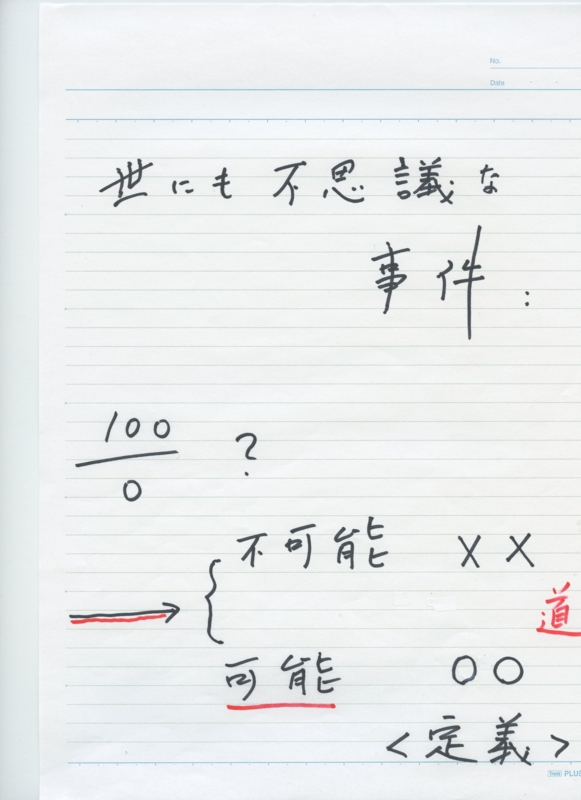 No.
Date
世にも不思議な
事件:
100
0
?
不可能 ××
道
可能 ○○
<定義>
PLU